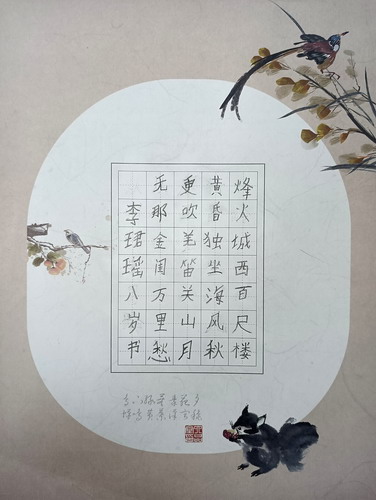 烽火城西百尺楼
黄昏独坐海风秋
更吹羌笛关山月
无那金闺万里愁
李珺瑶八岁书